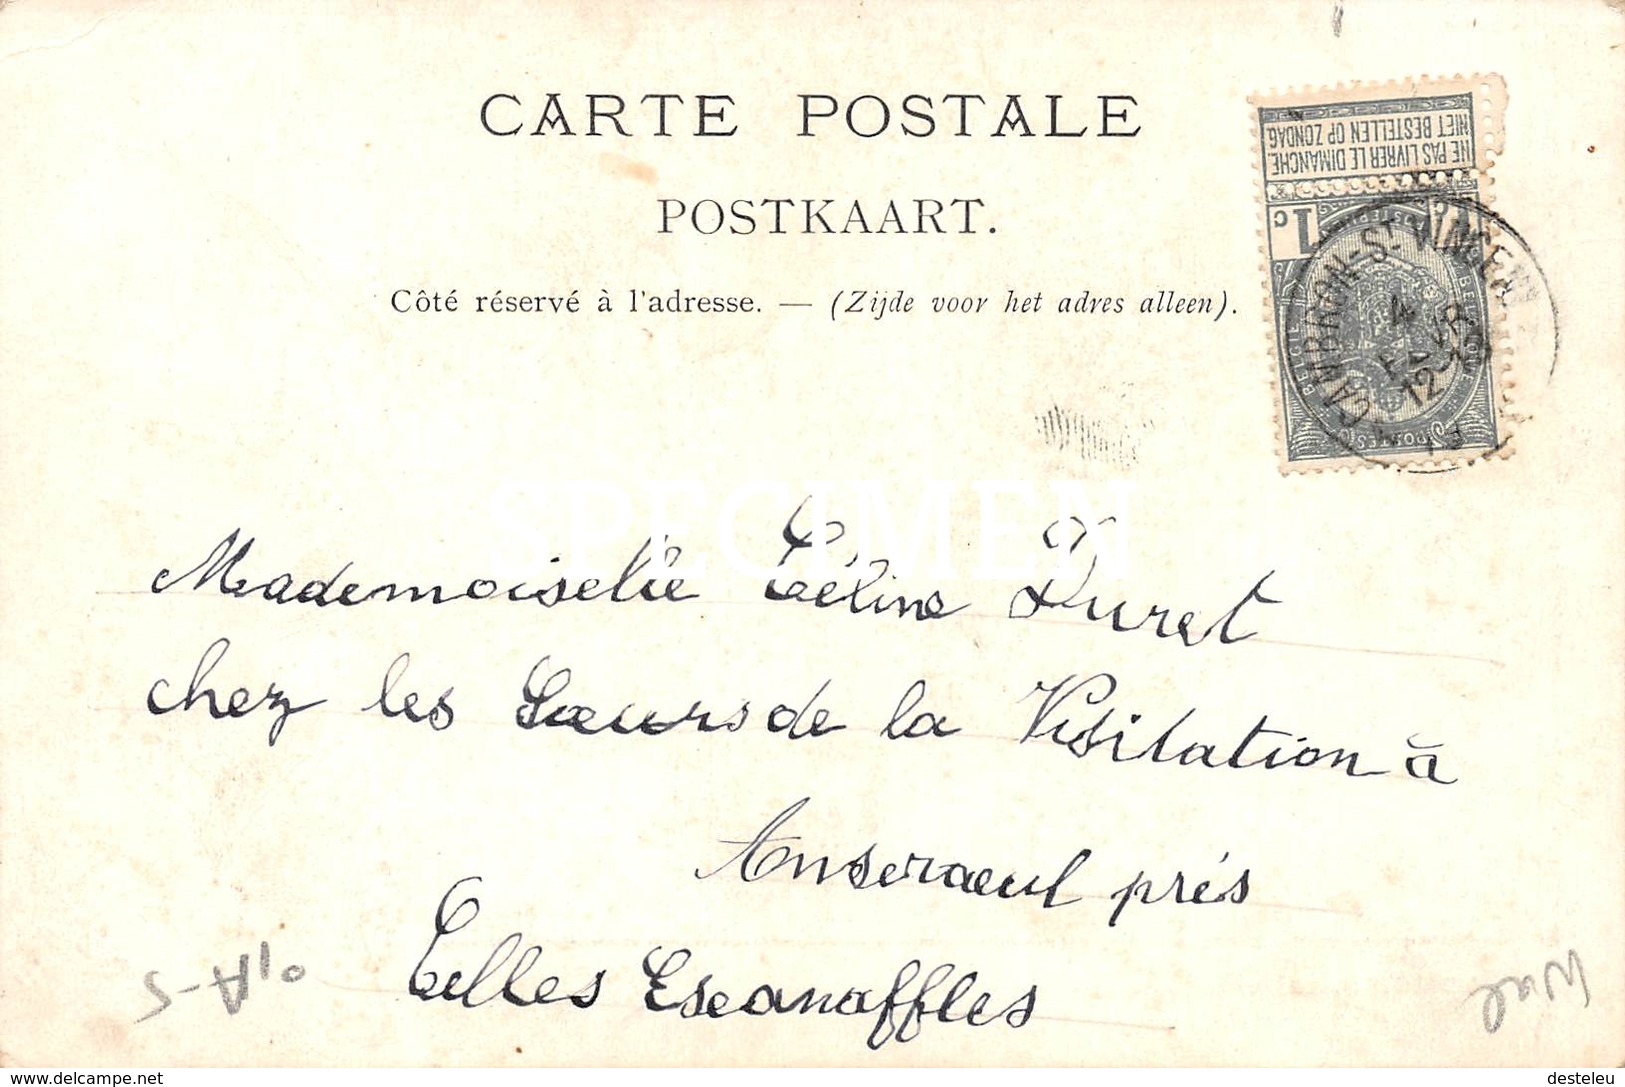 CARTE POSTALE
POSTKAART.
Côté réservé à l'adresse. — (Zijde voor het adres alleen).
NIET BESTELLEN OP ZONDAG
NE PAS LIVRER LE DIMANCHE
1 c
BELGIQUE
POSTES
CAMBRON-ST VINCENT
12-13
SPECIMEN
Mademoiselle Céline Duret
chez les Sœurs de la Visitation à
Anseroeul près
Celles Escanaffles
www.delcampe.net
desteleu